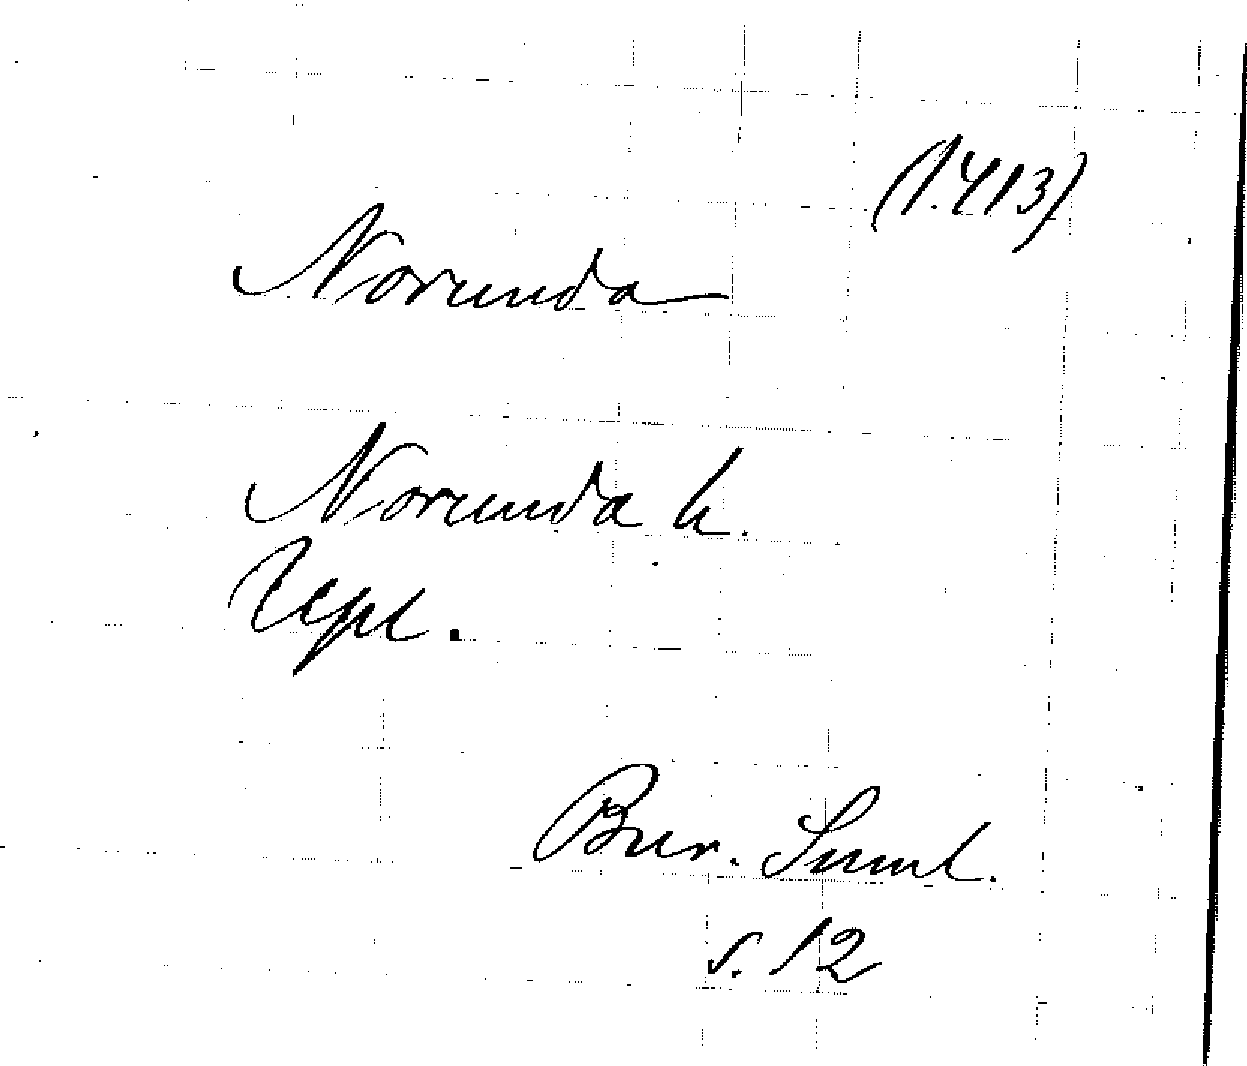 (1.413)
Norunda
Norunda h.
Uppl.
Bur. Suml.
s. 12